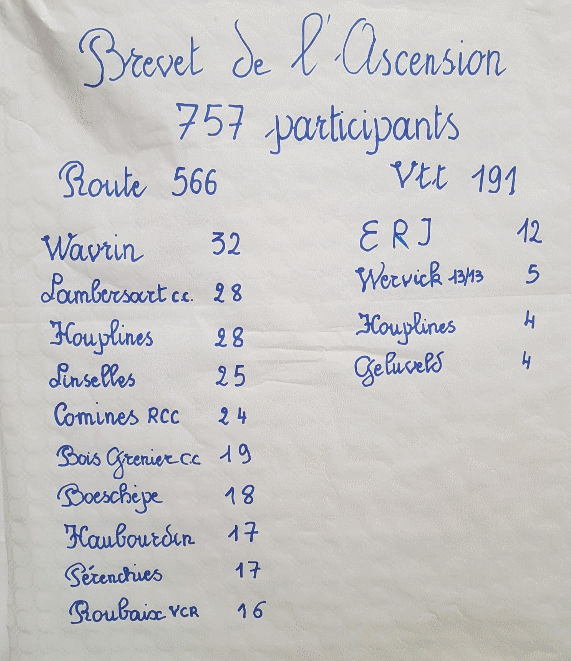 Brevet de l'Ascension
757 participants
Route 566
Wavrin 32
Lambersart cc. 28
Houplines 28
Linselles 25
Comines RCC 24
Bois Grenier cc 19
Boeschèpe 18
Haubourdin 17
Pérenchies 17
Roubaix VCR 16
Vtt 191
E R J 12
Wervick 13/13 5
Houplines 4
Geluveld 4